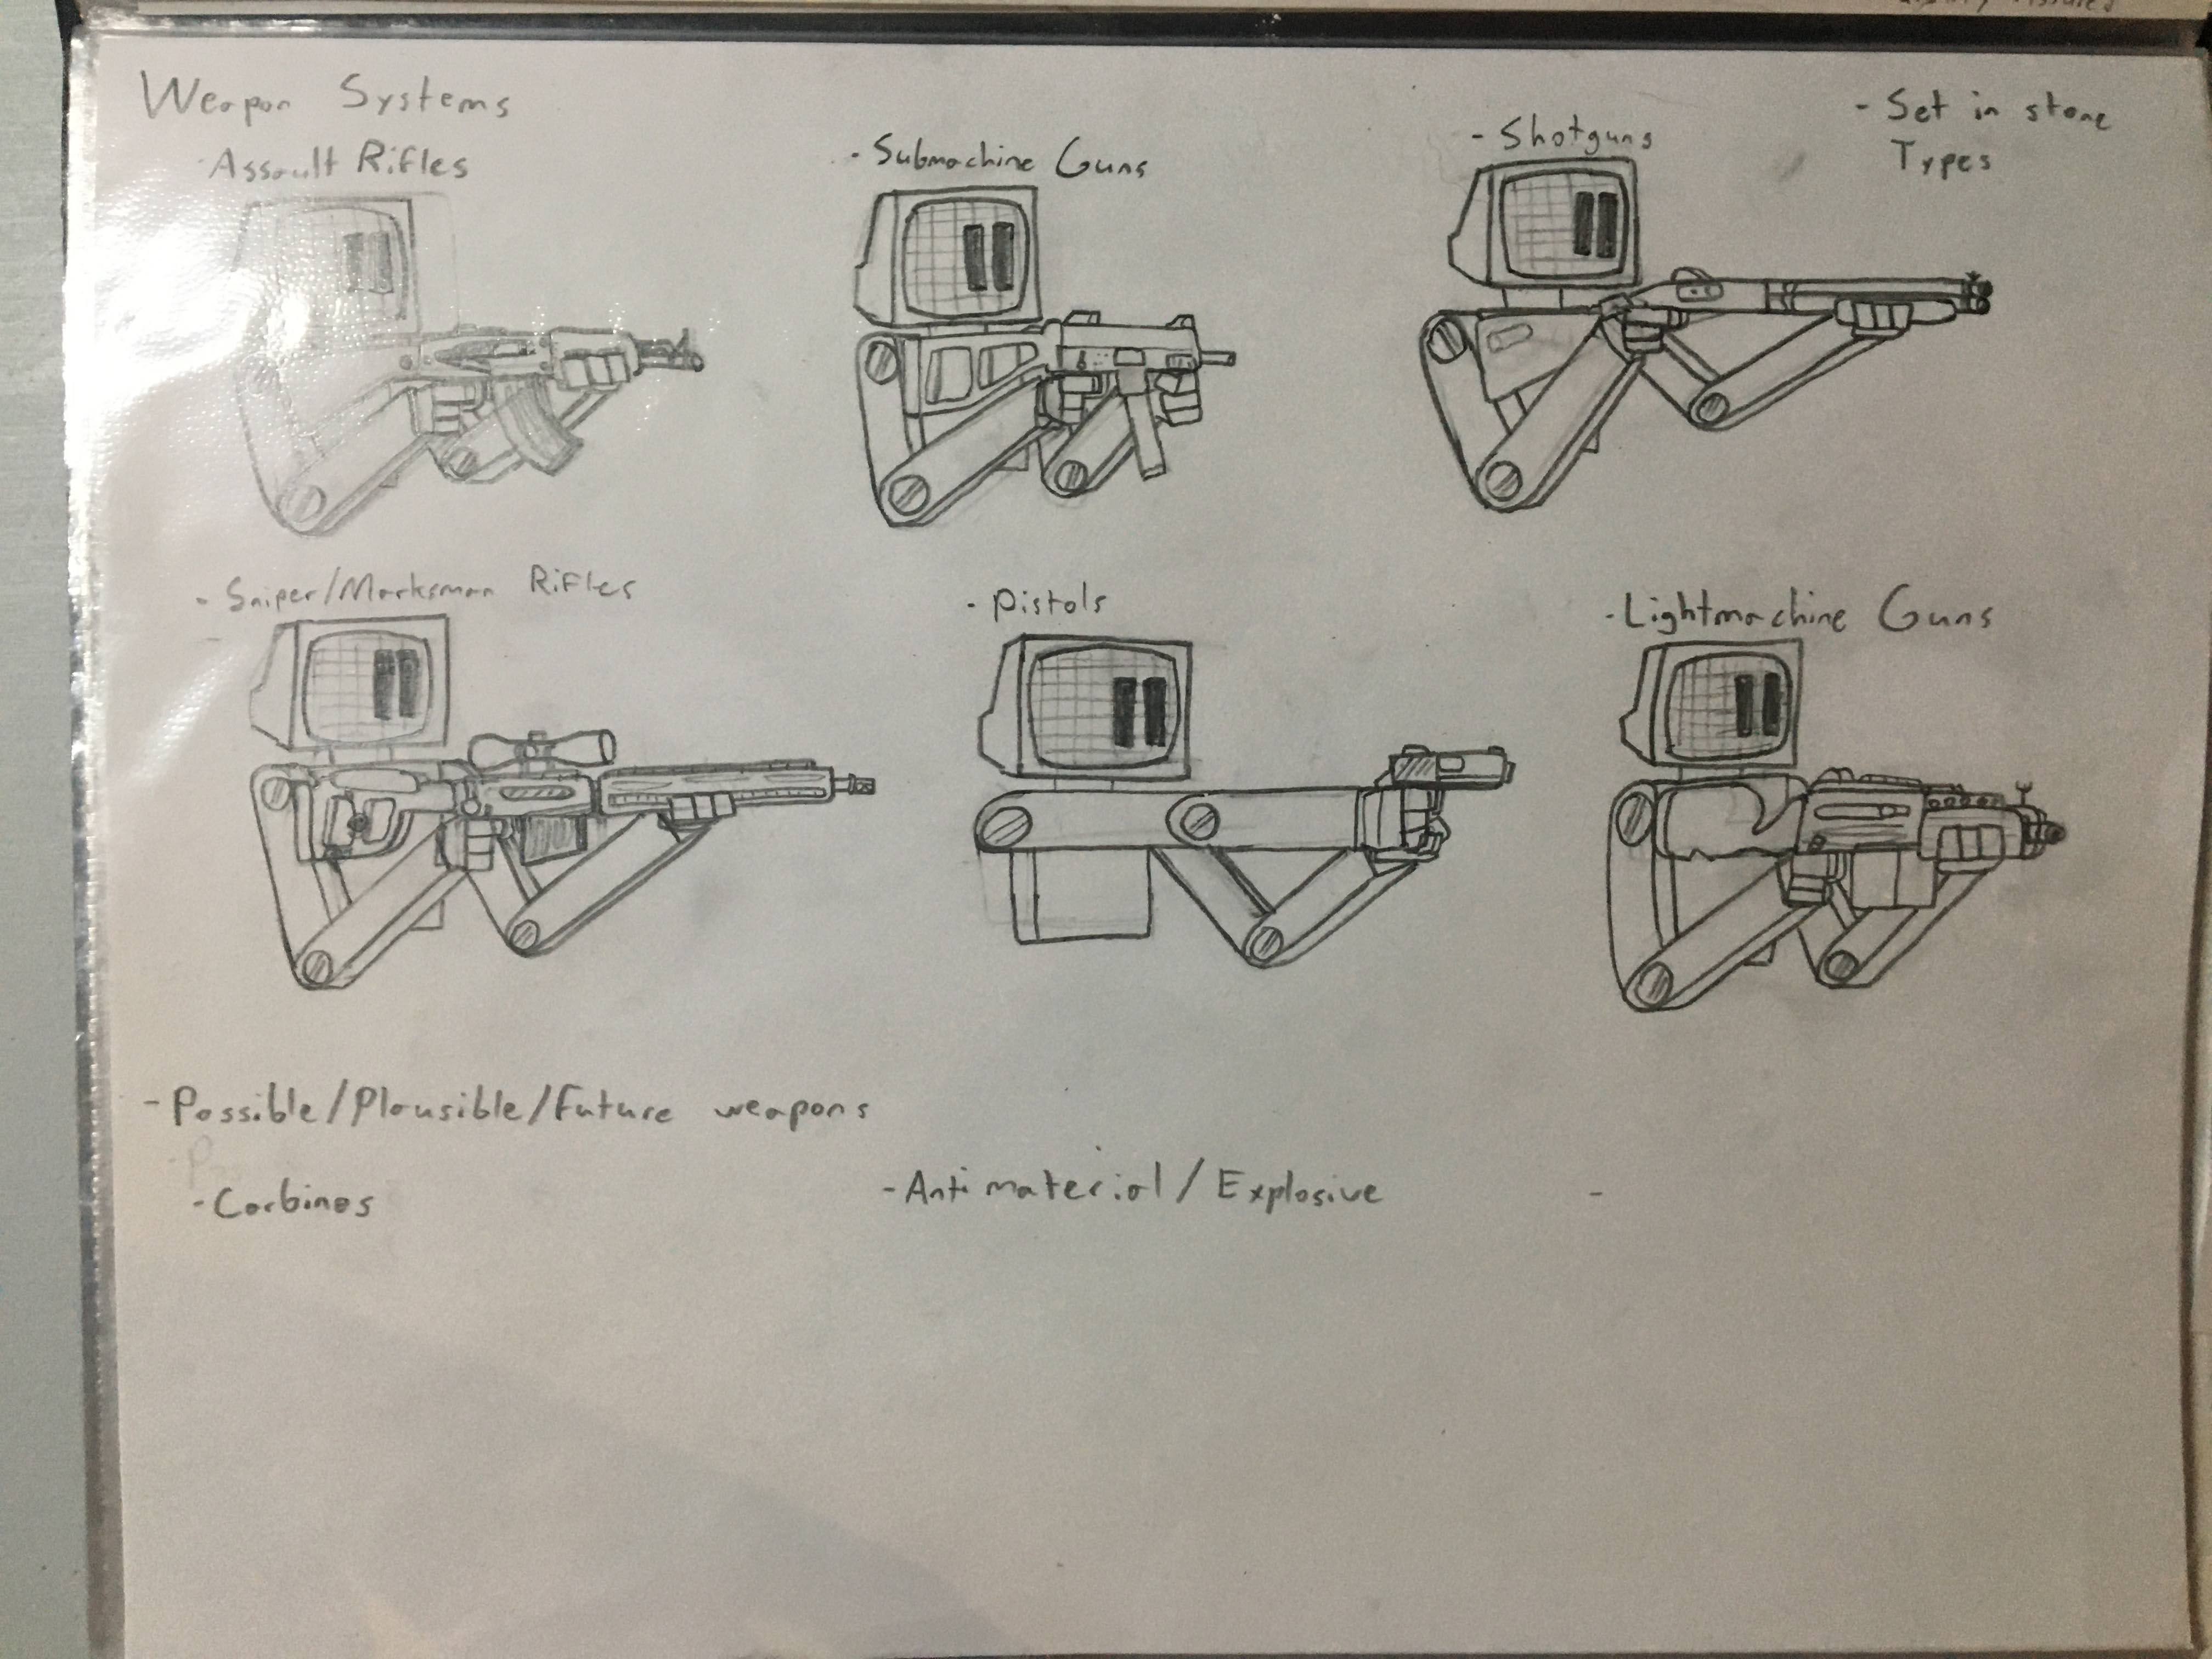 Weapon Systems
- Assault Rifles
- Submachine Guns
- Shotguns
- Set in stone
Types
- Sniper/Marksman Rifles
- Pistols
- Lightmachine Guns
- Possible/Plausible/Future weapons
- Carbines
- Antimaterial/Explosive
-